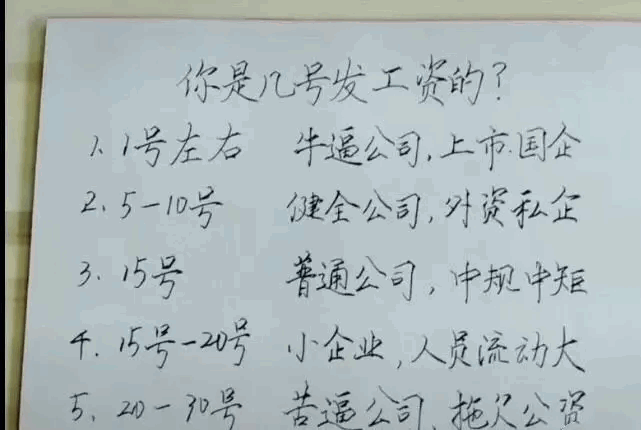 你是几号发工资的?
1、1号左右 牛逼公司,上市.国企
2、5-10号 健全公司,外资私企
3、15号 普通公司,中规中矩
4、15号-20号 小企业,人员流动大
5、20-30号 苦逼公司、拖欠公资